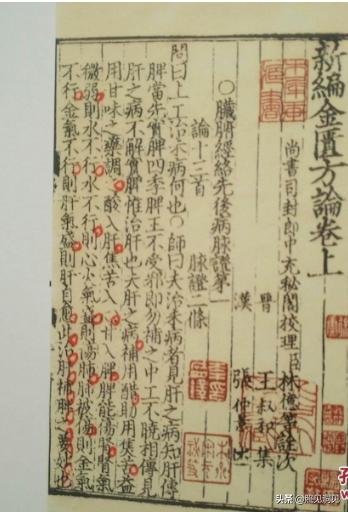 新編金匱方論卷上
尚書司封郎中充秘閣校理臣林億等詮次
晉 王叔和 集
漢 張仲景 述
○臟腑經絡先後病脉證第一
論十三首 脉證二條
問曰上工治未病何也○師曰夫治未病者見肝之病知肝傳
脾當先實脾四季脾王不受邪即勿補之中工不曉相傳見
肝之病不解實脾惟治肝也夫肝之病補用酸助用焦苦益
用甘味之藥調之酸入肝焦苦入心甘入脾脾能傷腎腎氣
微弱則水不行水不行則心火氣盛則傷肺肺被傷則金氣
不行金氣不行則肝氣盛則肝自愈此治肝補脾之要妙也
头条